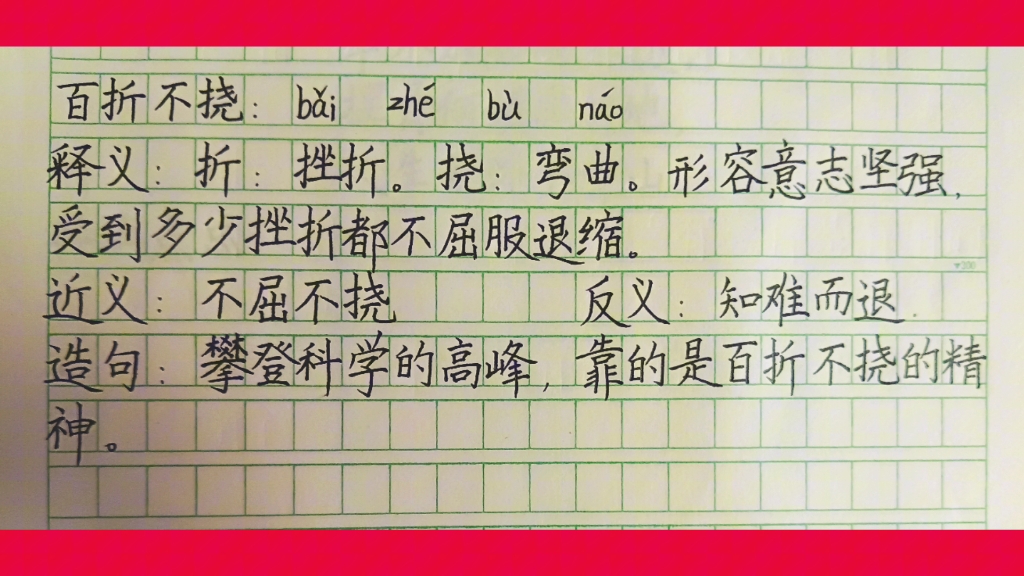 百折不挠：bǎi zhé bù náo
释义：折：挫折。挠：弯曲。形容意志坚强，
受到多少挫折都不屈服退缩。
近义：不屈不挠 反义：知难而退.
造句：攀登科学的高峰，靠的是百折不挠的精
神。